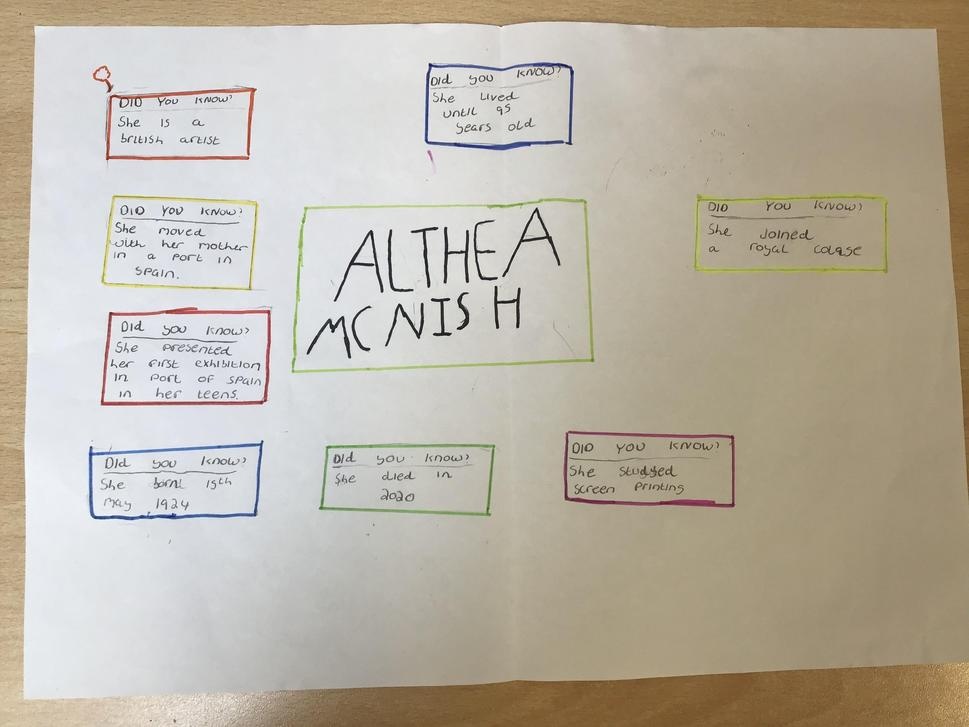 DID YOU KNOW?
She is a
british artist
Did you KNOW?
She Lived
until 95
years old
DID YOU KNOW?
She moved
with her mother
in a port in
spain.
ALTHEA
MCNISH
DID YOU KNOW?
She Joined
a royal colage
Did you know?
She presented
her first exhibition
in port of spain
in her teens.
Did you know?
She born 15th
may 1924
Did you know?
She died in
2020
DID YOU KNOW?
She studyed
screen printing